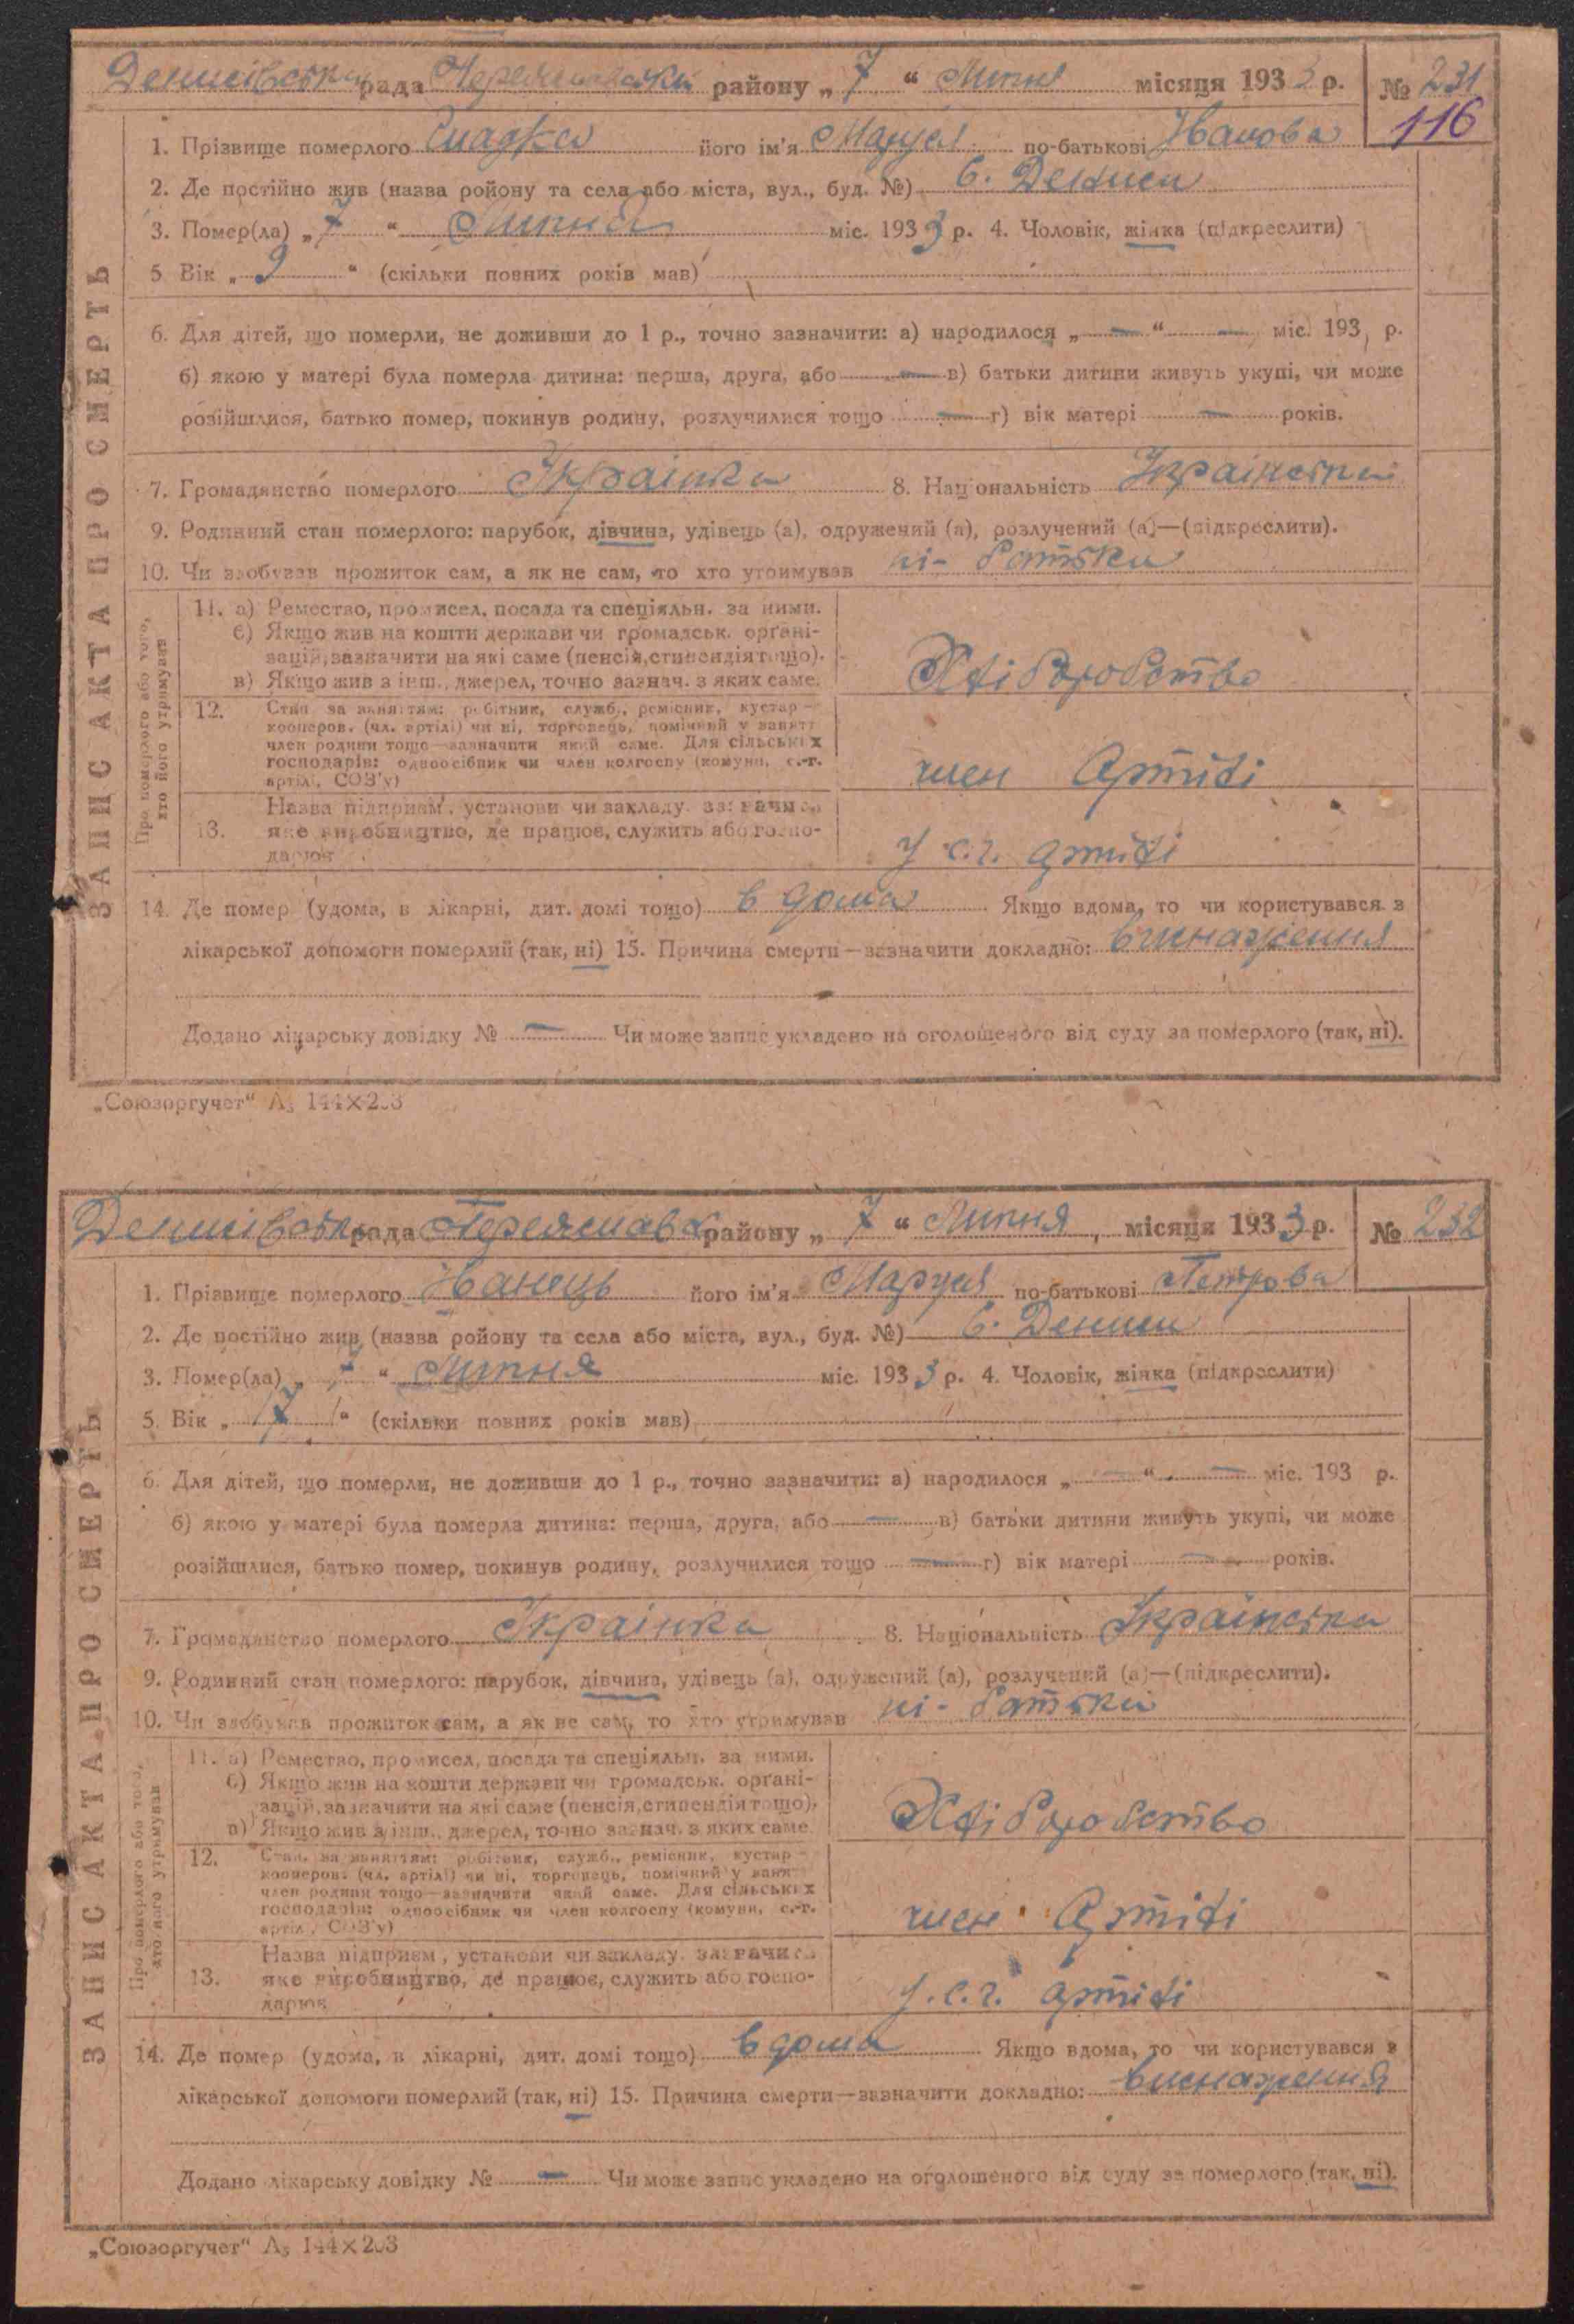 Денисівська рада Переяславськ району „ 7 “ Липня місяця 1933 р. № 231
116
1. Прізвище померлого його ім'я Маруся по-батькові Іванова
2. Де постійно жив (назва ройону та села або міста, вул., буд. №) С. Дениси
3. Помер(ла) „ 7 “ Липня міс. 1933 р. 4. Чоловік, жінка (підкреслити)
5 Вік „ 9 “ (скільки повних років мав)
6. Для дітей, що померли, не доживши до 1 р., точно зазначити: а) народилося „ — “ — міс. 193 р.
б) якою у матері була померла дитина: перша, друга, або — в) батьки дитини живуть укупі, чи може
розійшлися, батько помер, покинув родину, розлучилися тощо — г) вік матері — років.
7. Громадянство померлого Українка 8. Національність Українська
9. Родинний стан померлого: парубок, дівчина, удівець (а), одружений (а), розлучений (а)—(підкреслити).
10. Чи здобував прожиток сам, а як не сам, то хто утримував ні - батьки
ЗАПИС АКТА ПРО СМЕРТЬ
Про померлого або того, хто його утримував
11. а) Ремество, промисел, посада та спеціяльн. за ними.
б) Якщо жив на кошти держави чи громадськ. органі-
зацій, зазначити на які саме (пенсія, стипендія тощо).
в) Якщо жив з інш., джерел, точно зазнач. з яких саме.
Хліборобство
12. Стан за заняттям: робітник, служб., ремісник, кустар —
кооперов. (чл. артілі) чи ні, торговець, помічний у занятт
член родини тощо—зазначити який саме. Для сільських
господарів: одноосібник чи член колгоспу (комуни, с.-г.
артілі, СОЗ'у)
член Артілі
Назва підприєм., установи чи закладу. зазначити
13. яке виробництво, де працює, служить або госпо-
дарює
у с.г. артілі
14. Де помер (удома, в лікарні, дит. домі тощо) в дома Якщо вдома, то чи користувався з
лікарської допомоги померлий (так, ні) 15. Причина смерти—зазначити докладно: виснаження
Додано лікарську довідку № — Чи може запис укладено на оголошеного від суду за померлого (так, ні).
„Союзоргучет“ А₅ 144×203
Денисівська рада Переяславськ району „ 7 “ Липня місяця 1933 р. № 232
1. Прізвище померлого Іванець його ім'я Маруся по-батькові Петрова
2. Де постійно жив (назва ройону та села або міста, вул., буд. №) С. Дениси
3. Помер(ла) „ 7 “ Липня міс. 1933 р. 4. Чоловік, жінка (підкреслити)
5. Вік „ “ (скільки повних років мав)
6. Для дітей, що померли, не доживши до 1 р., точно зазначити: а) народилося „ — “ — міс. 193 р.
б) якою у матері була померла дитина: перша, друга, або — в) батьки дитини живуть укупі, чи може
розійшлися, батько помер, покинув родину, розлучилися тощо — г) вік матері — років.
7. Громадянство померлого Українка 8. Національність Українська
9. Родинний стан померлого: парубок, дівчина, удівець (а), одружений (а), розлучений (а)—(підкреслити).
10. Чи здобував прожиток сам, а як не сам, то хто утримував ні - батьки
ЗАПИС АКТА ПРО СМЕРТЬ
Про померлого або того, хто його утримував
11. а) Ремество, промисел, посада та спеціяльн. за ними.
б) Якщо жив на кошти держави чи громадськ. органі-
зацій, зазначити на які саме (пенсія, стипендія тощо).
в) Якщо жив з інш., джерел, точно зазнач. з яких саме
Хліборобство
12. Стан за заняттям: робітник, служб., ремісник, кустар —
кооперов. (чл. артілі) чи ні, торговець, помічний у занятт
член родини тощо—зазначити який саме. Для сільських
господарів: одноосібник чи член колгоспу (комуни, с.-г.
артілі, СОЗ'у)
член Артілі
Назва підприєм., установи чи закладу. зазначити
13. яке виробництво, де працює, служить або госпо-
дарює
у.с.г. артілі
14. Де помер (удома, в лікарні, дит. домі тощо) в дома Якщо вдома, то чи користувався з
лікарської допомоги померлий (так, ні) 15. Причина смерти—зазначити докладно: виснаження
Додано лікарську довідку № — Чи може запис укладено на оголошеного від суду за померлого (так, ні).
„Союзоргучет“ А₅ 144×203